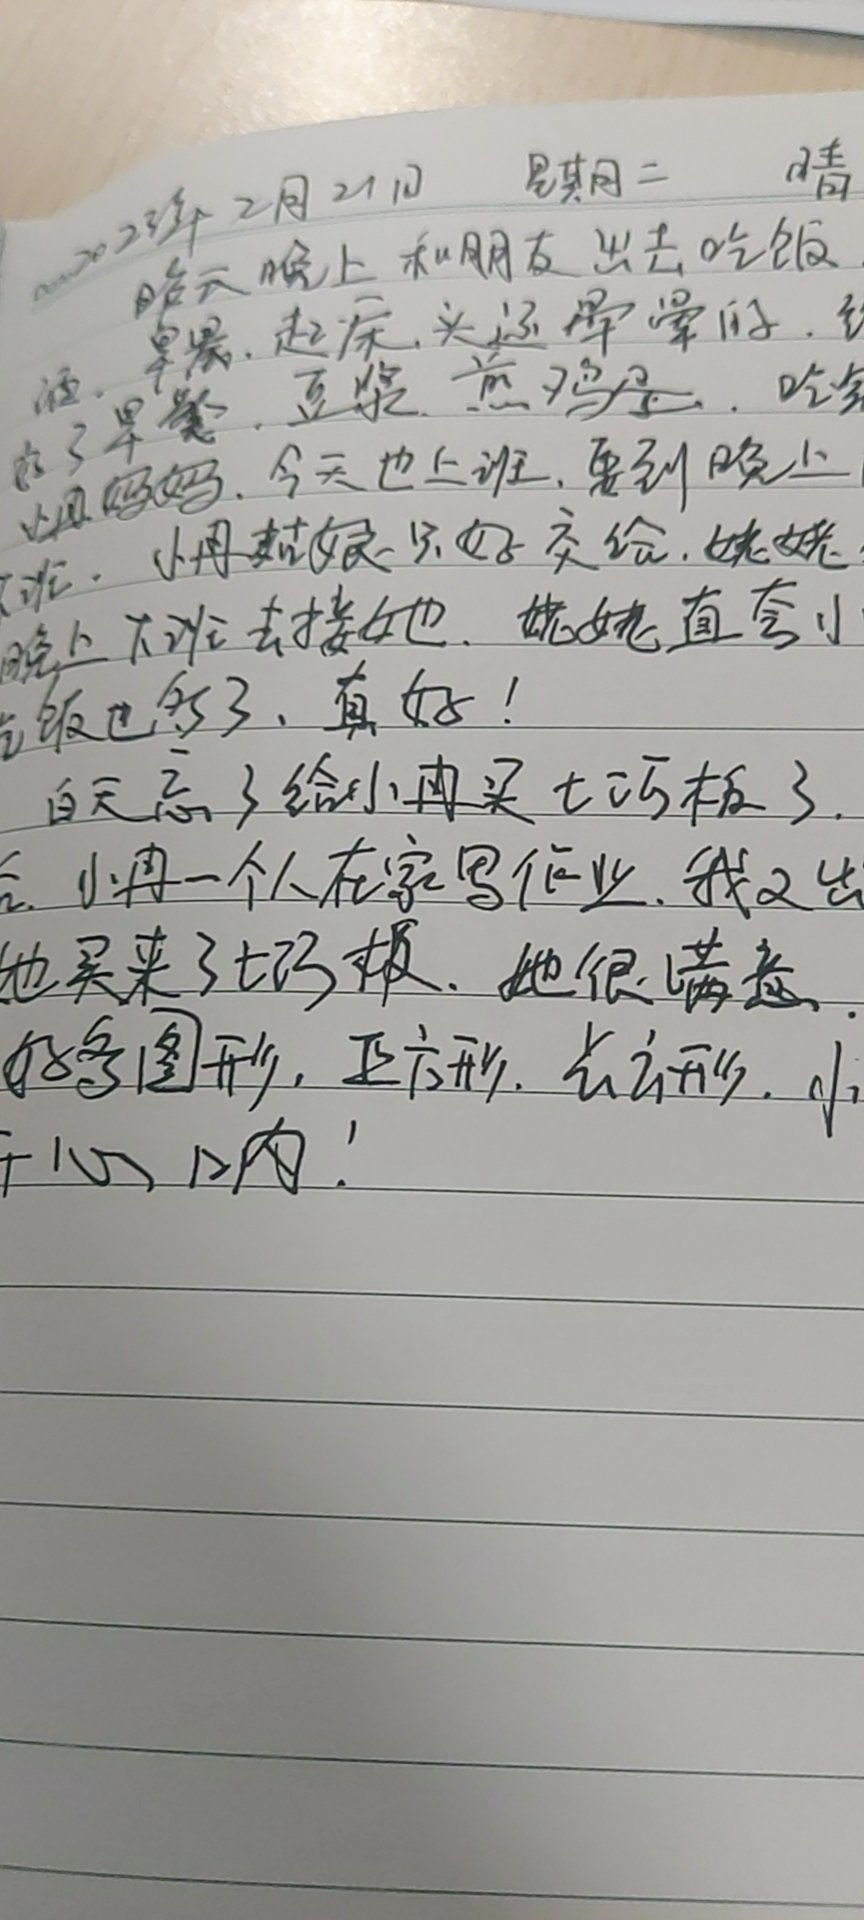 2023年2月21日 星期二 晴
昨天晚上和朋友出去吃饭
酒.早晨.起床.头还晕晕的.
了早餐.豆浆.煎鸡蛋.吃完
妈妈.今天也上班.要到晚上
班.小冉姑娘只好交给.姥姥
晚上下班去接她.姥姥直夸小
吃饭也多了、真好!
白天忘了给小冉买七巧板了.
小冉一个人在家写作业.我又出
她买来了七巧板.她很满意.
好多图形.正方形.长方形.小
开心、口内!